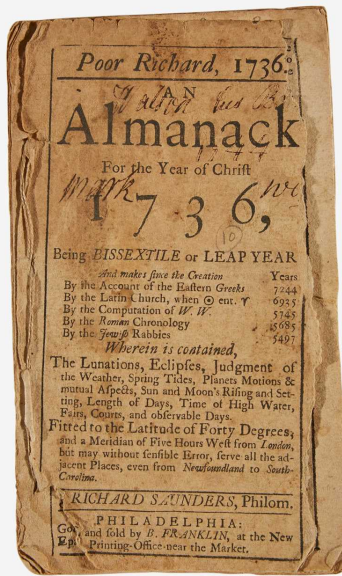 Poor Richard, 1736.
AN
Almanack
For the Year of Christ
1736,
Being BISSEXTILE or LEAP YEAR
And makes since the Creation Years
By the Account of the Eastern Greeks 7244
By the Latin Church, when ☉ ent. ♈ 6935
By the Computation of W. W. 5745
By the Roman Chronology 5685
By the Jewish Rabbies 5497
Wherein is contained,
The Lunations, Eclipses, Judgment of
the Weather, Spring Tides, Planets Motions &
mutual Aspects, Sun and Moon's Rising and Set-
ting, Length of Days, Time of High Water,
Fairs, Courts, and observable Days.
Fitted to the Latitude of Forty Degrees,
and a Meridian of Five Hours West from London,
but may without sensible Error, serve all the ad-
jacent Places, even from Newfoundland to South-
Carolina.
RICHARD SAUNDERS, Philom.
PHILADELPHIA:
and sold by B. FRANKLIN, at the New
Printing-Office near the Market.
mark we
10